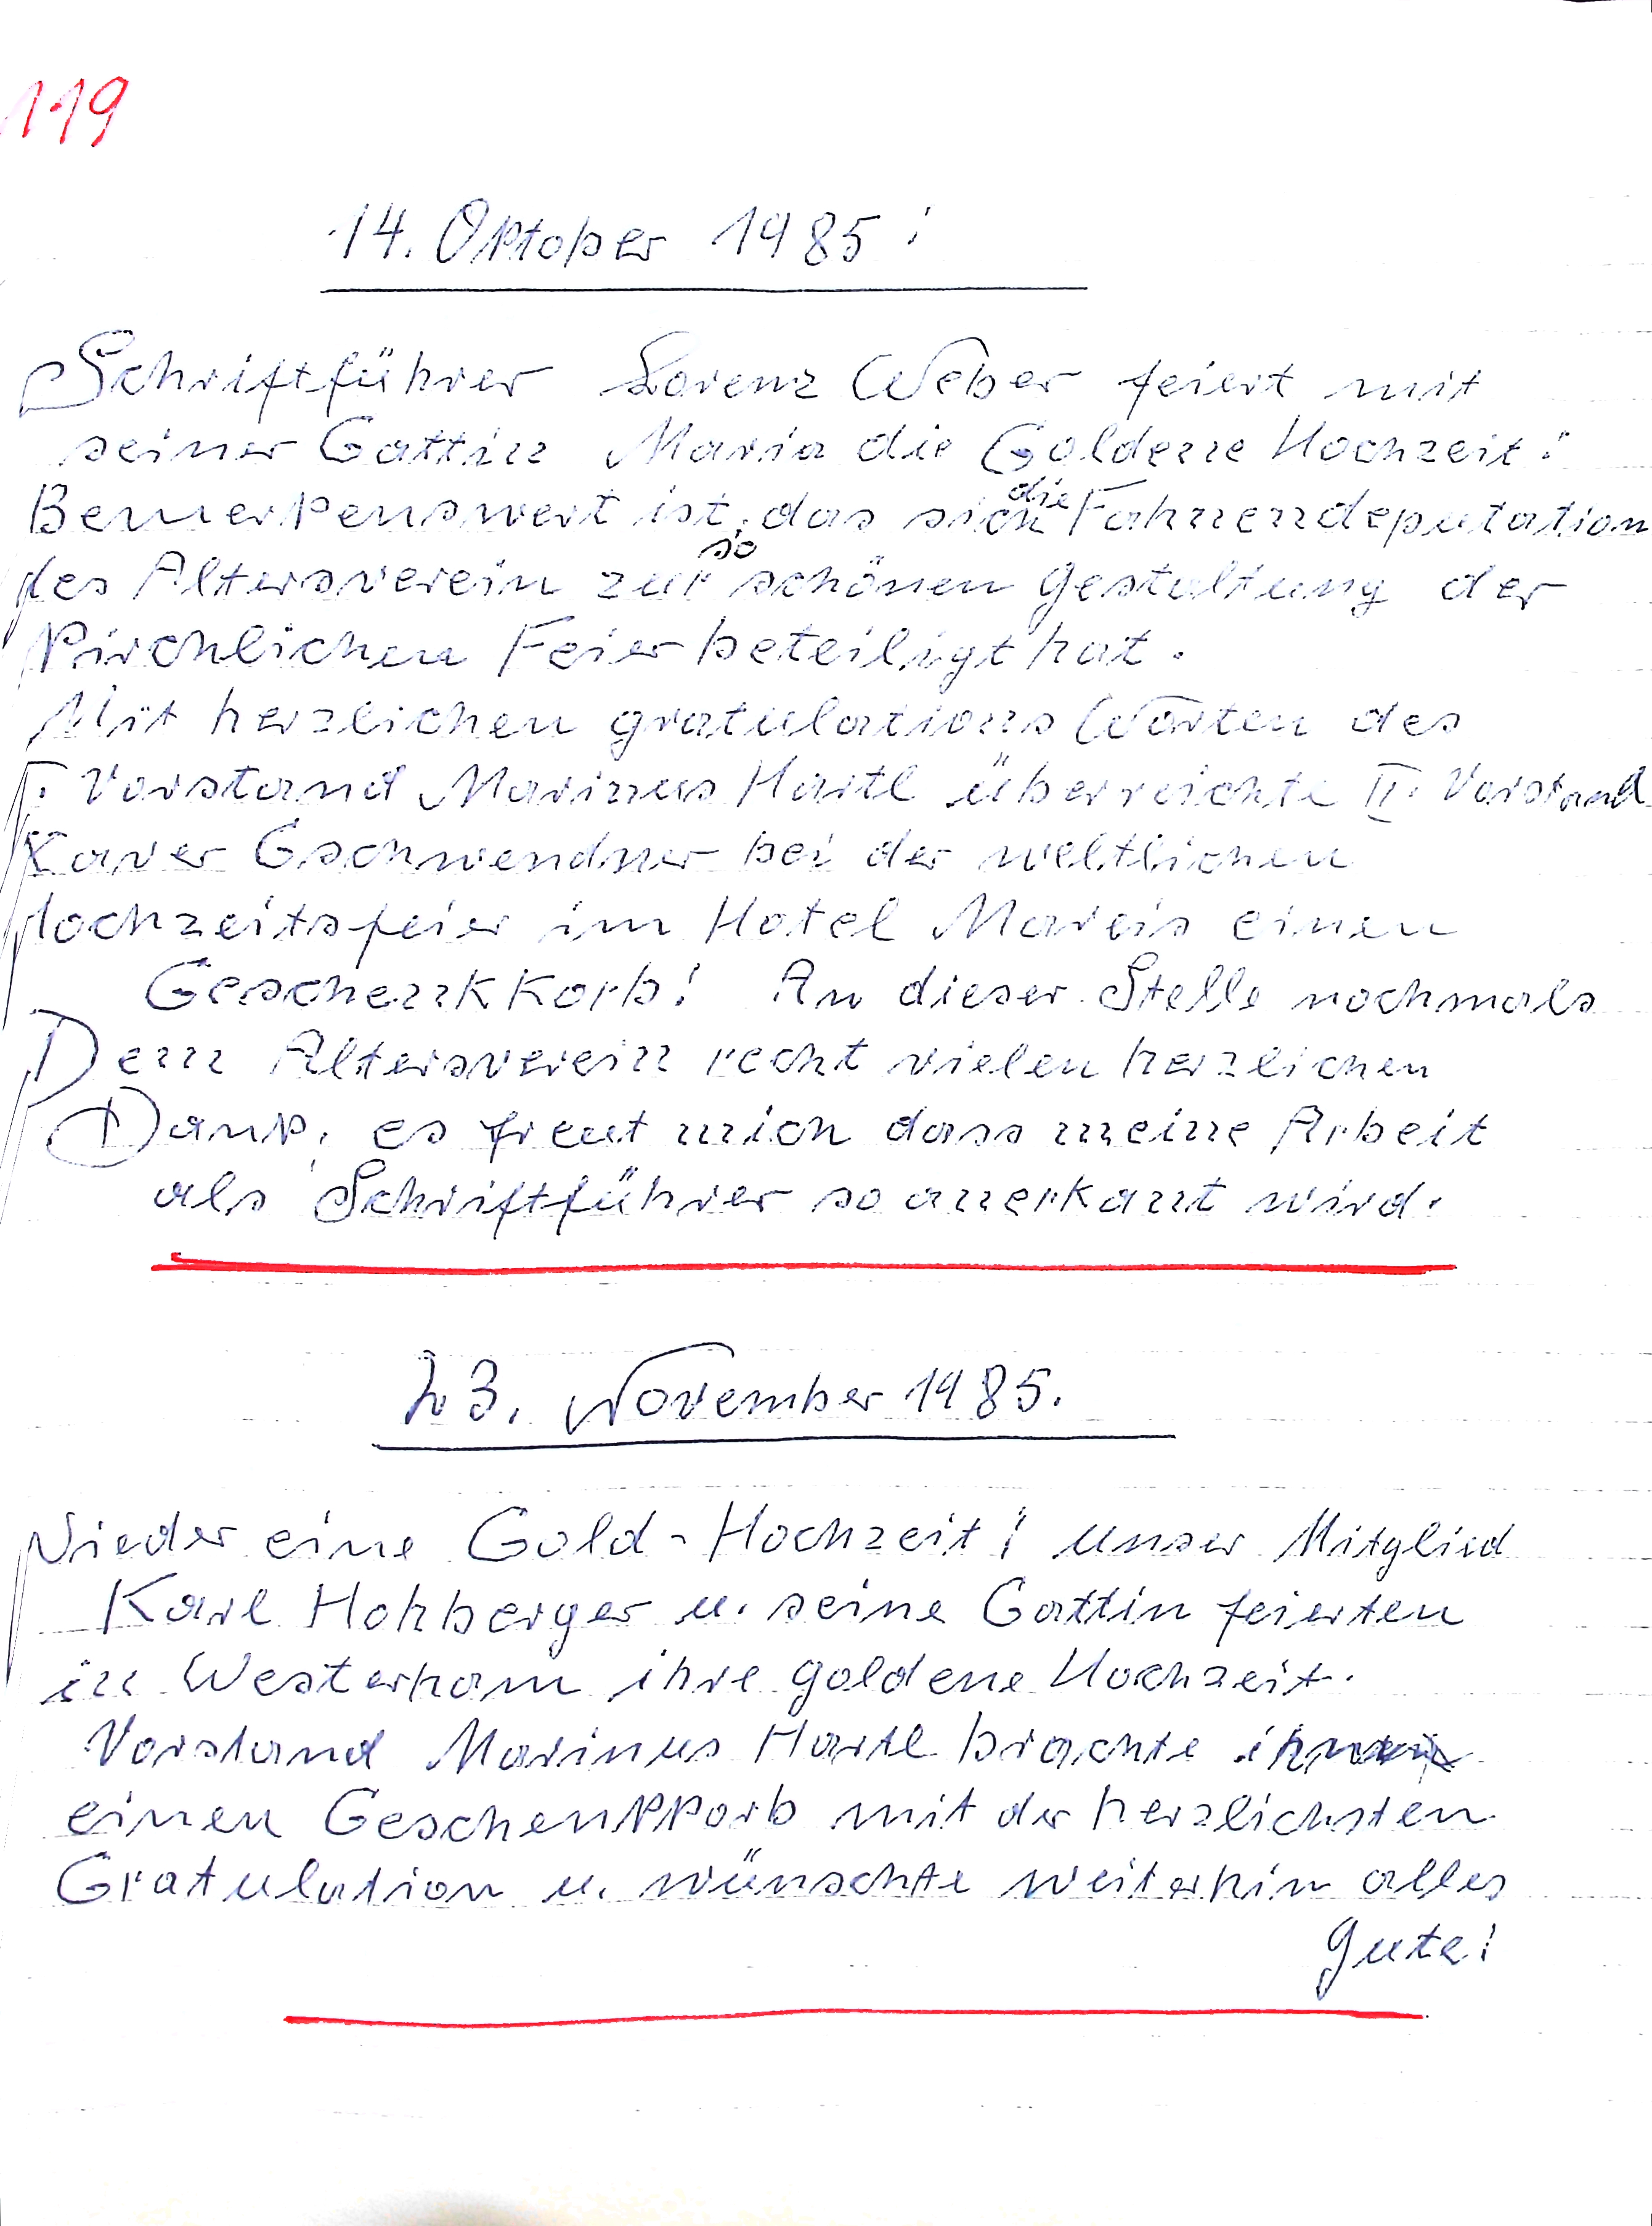 119
14. Oktober 1985:
Schriftführer Lorenz Weber feiert mit
seiner Gattin Maria die Goldene Hochzeit!
Bemerkenswert ist, das sich die Fahnendeputation
des Altersverein zur so schönen gestaltung der
Kirchlichen Feier beteiligt hat.
Mit herzlichen gratulations Worten des
I. Vorstand Marinus Hartl überreichte II. Vorstand
Xaver Gschwendner bei der weltlichen
Hochzeitsfeier im Hotel Mareis einen
Geschenkkorb! An dieser Stelle nochmals
Dem Altersverein recht vielen herzlichen
Dank, es freut mich dass meine Arbeit
als Schriftführer so anerkannt wird.
23. November 1985.
Wieder eine Gold-Hochzeit! unser Mitglied
Karl u. seine Gattin feierten
in Westerham ihre goldene Hochzeit.
Vorstand Marinus Hartl brachte
einen Geschenkkorb mit der herzlichsten
Gratulation u. wünschte weiterhin alles
gute!